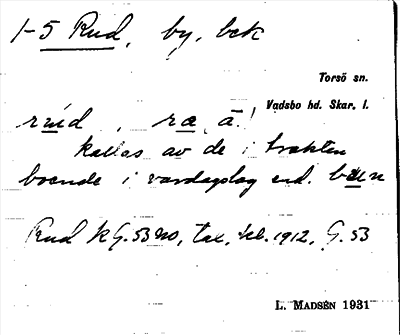 1-5 Rud, by, bek
Torsö sn.
Vadsbo hd. Skar. l.
rúd, ræ, ā!
kallas av de i trakten
boende i vardagslag end. bæen
Rud kG. 53 NO, tax, jbl. 1912, G. 53
L. MADSÉN 1931